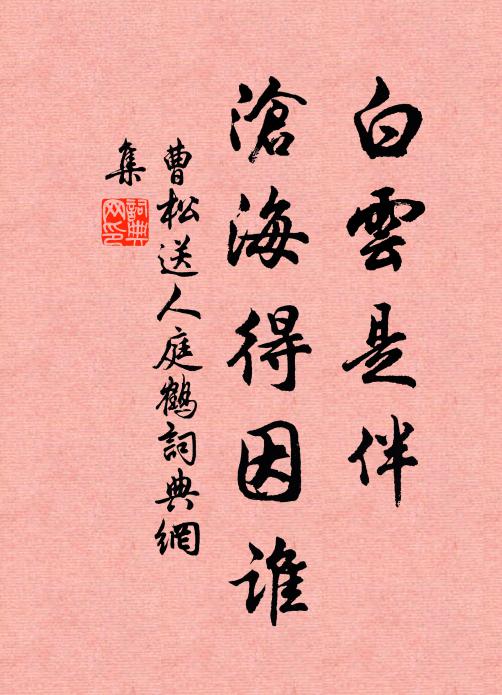 白雲是伴
滄海得因誰
曹松送人庭鶴詞典網
集
詞典
网印